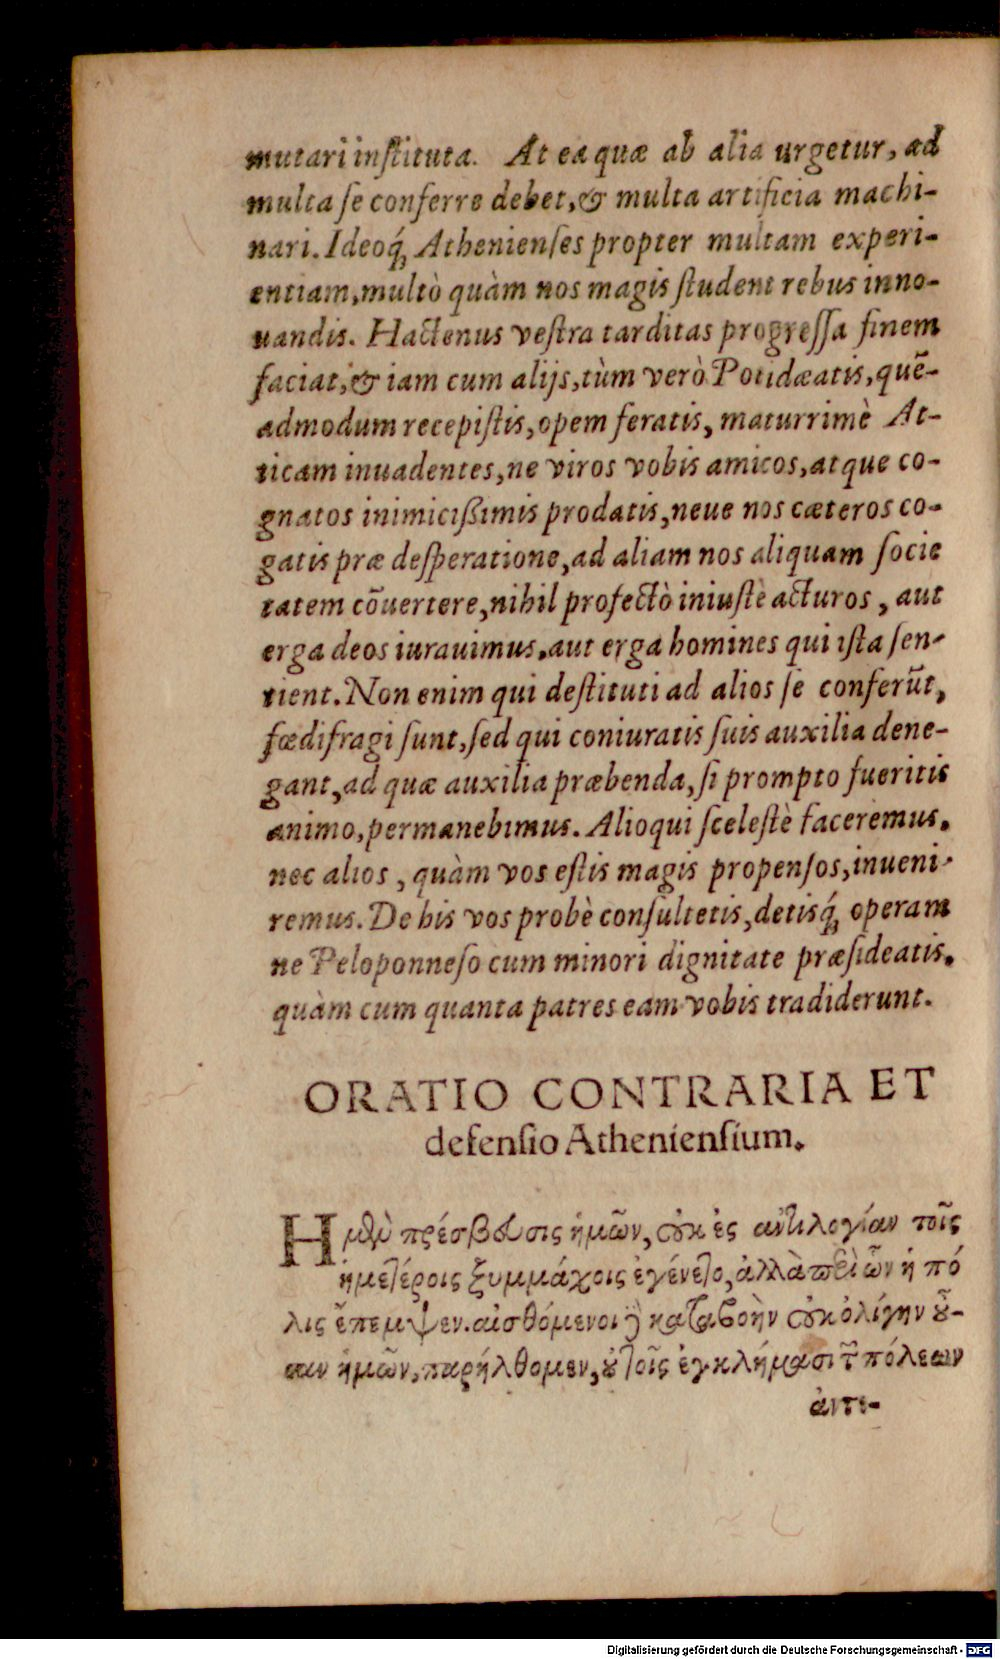 mutari inſtituta. At ea quæ ab alia urgetur, ad
multa ſe conferre debet, & multa artificia machi-
nari. Ideoq́ꝫ Athenienſes propter multam experi-
entiam, multò quàm nos magis ſtudent rebus inno-
uandis. Hactenus veſtra tarditas progreſſa finem
faciat, & iam cum alijs, tùm verò Potidæatis, quē-
admodum recepiſtis, opem feratis, maturrimè At-
ticam inuadentes, ne viros vobis amicos, atque co-
gnatos inimicißimis prodatis, neue nos cæteros co-
gatis præ deſperatione, ad aliam nos aliquam ſocie
tatem cōuertere, nihil profectò iniuſtè acturos, aut
erga deos iurauimus, aut erga homines qui iſta ſen-
tient. Non enim qui deſtituti ad alios ſe conferūt,
fœdifragi ſunt, ſed qui coniuratis ſuis auxilia dene-
gant, ad quæ auxilia præbenda, ſi prompto fueritis
animo, permanebimus. Alioqui ſceleſtè faceremus,
nec alios, quàm vos eſtis magis propenſos, inueni-
remus. De his vos probè conſultetis, detisq́ꝫ operam
ne Peloponneſo cum minori dignitate præſideatis,
quàm cum quanta patres eam vobis tradiderunt.
ORATIO CONTRARIA ET
defenſio Athenienſium.
Η μὲν πρέσβευσις ἡμῶν, οὐκ ἐς ἀντιλογίαν τοῖς
ἡμετέροις ξυμμάχοις ἐγένετο, ἀλλὰ περὶ ὧν ἡ πό
λις ἔπεμψεν. αἰσθόμενοι δὲ καταβοὴν οὐκ ὀλίγην οὖ-
σαν ἡμῶν, παρήλθομεν, οὐ τοῖς ἐγκλήμασι τῶν πόλεων
ἀντι-
Digitalisierung gefördert durch die Deutsche Forschungsgemeinschaft - DFG